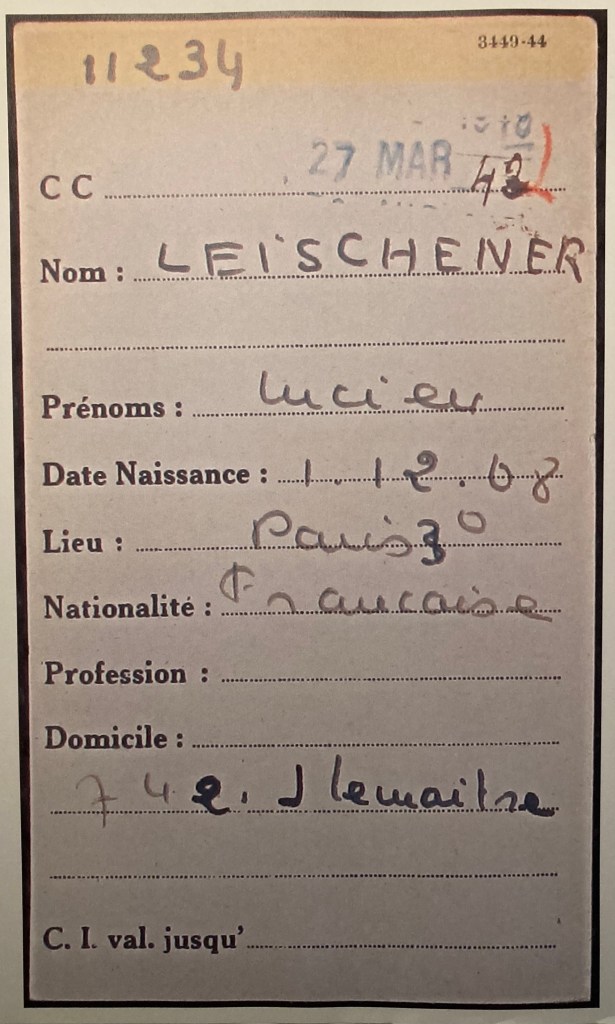 11234
3449-44
27 MAR 42
C C
Nom : LEISCHENER
Prénoms : Lucien
Date Naissance : 1. 12. 08
Lieu : Paris 3°
Nationalité : Française
Profession :
Domicile :
J lemaitre
C. I. val. jusqu'